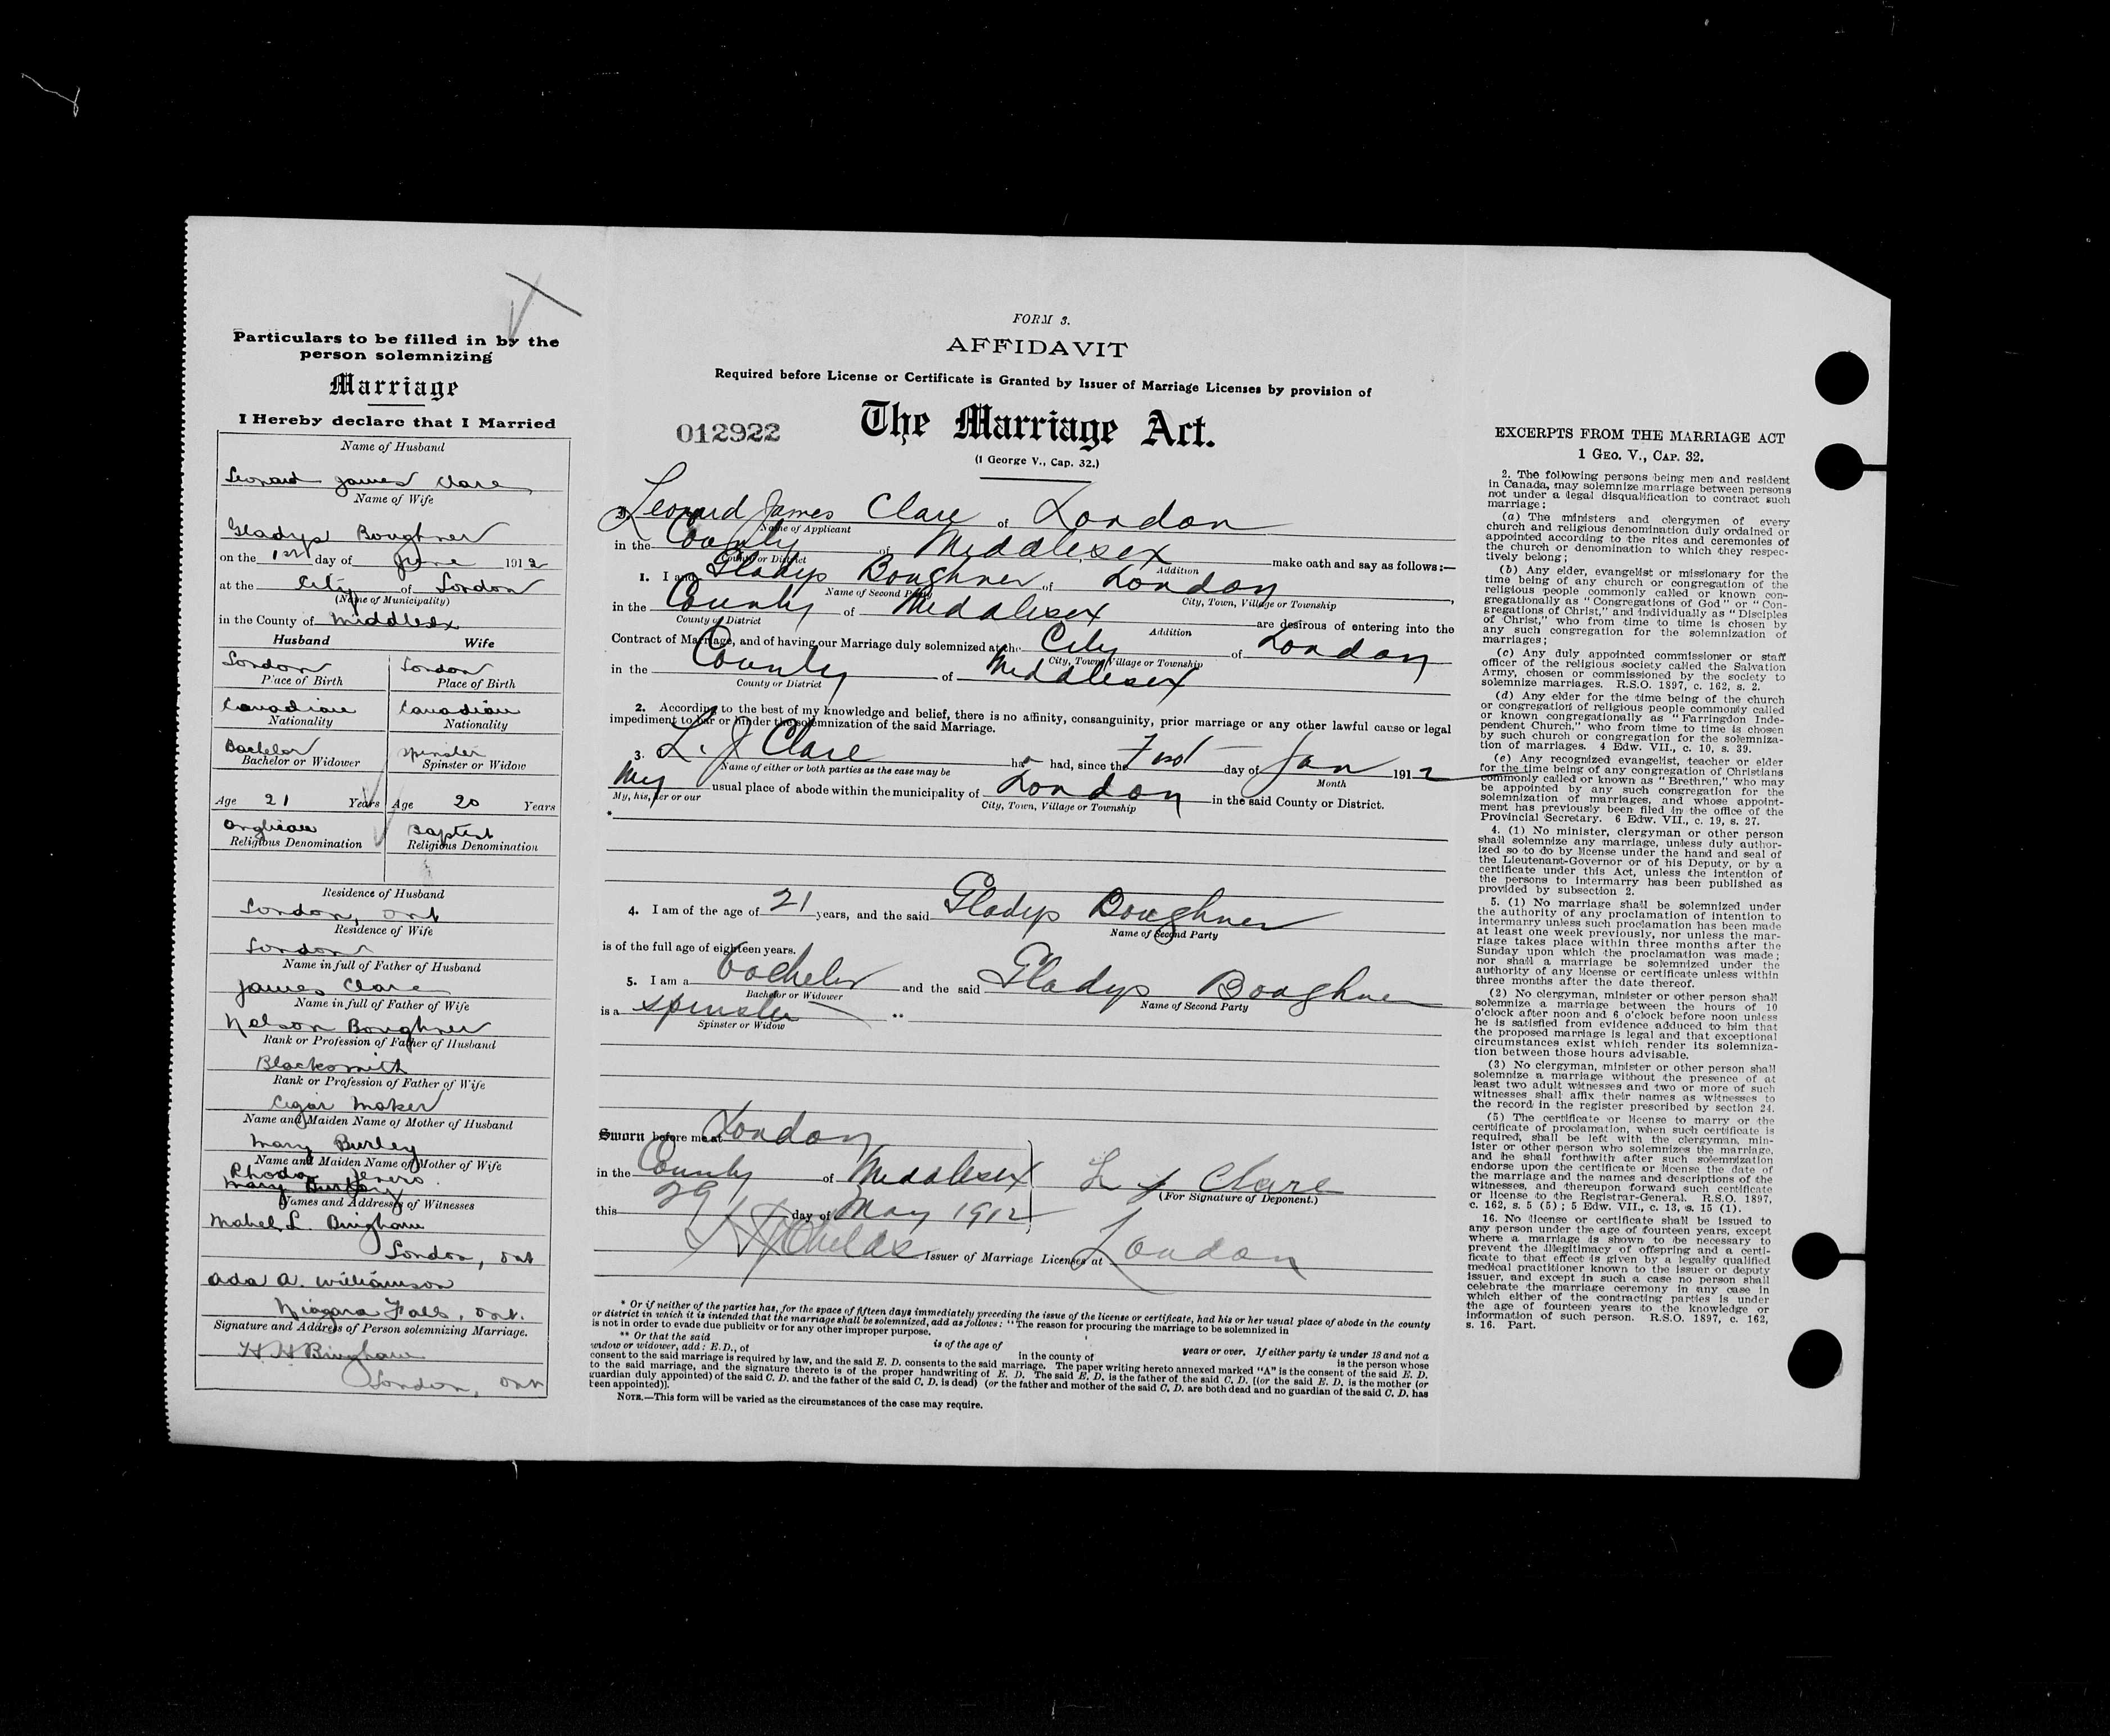 Particulars to be filled in by the
person solemnizing
Marriage
I Hereby declare that I Married
Name of Husband
Leonard James Clare
Name of Wife
Gladys Boughner
on the 1st day of June 1912
at the City of London
(Name of Municipality)
in the County of Middlesex
Husband Wife
London London
Place of Birth Place of Birth
Canadian Canadian
Nationality Nationality
Bachelor Spinster
Bachelor or Widower Spinster or Widow
Age 21 Years Age 20 Years
Anglican Baptist
Religious Denomination Religious Denomination
Residence of Husband
London, Ont
Residence of Wife
London
Name in full of Father of Husband
James Clare
Name in full of Father of Wife
Nelson Boughner
Rank or Profession of Father of Husband
Blacksmith
Rank or Profession of Father of Wife
Cigar Maker
Name and Maiden Name of Mother of Husband
Mary Burley
Name and Maiden Name of Mother of Wife
Rhoda
Mary Burley
Names and Address of Witnesses
Mabel L. Bingham
London, Ont
Ada A. Williamson
Niagara Falls, Ont.
Signature and Address of Person solemnizing Marriage.
H H Bingham
London, Ont
FORM 3.
AFFIDAVIT
Required before License or Certificate is Granted by Issuer of Marriage Licenses by provision of
012922 The Marriage Act.
(1 George V., Cap. 32.)
I Leonard James Clare of London
Name of Applicant
in the County of Middlesex make oath and say as follows:—
County or District Addition
1. I and Gladys Boughner of London,
Name of Second Party City, Town, Village or Township
in the County of Middlesex are desirous of entering into the
County or District Addition
Contract of Marriage, and of having our Marriage duly solemnized at the City of London
City, Town, Village or Township
in the County of Middlesex
County or District
2. According to the best of my knowledge and belief, there is no affinity, consanguinity, prior marriage or any other lawful cause or legal
impediment to bar or hinder the solemnization of the said Marriage.
3. L. J Clare ha had, since the day of Jan 1912
Name of either or both parties as the case may be Month
My usual place of abode within the municipality of London in the said County or District.
My, his, her or our City, Town, Village or Township
*
4. I am of the age of 21 years, and the said Gladys Boughner
Name of Second Party
is of the full age of eighteen years.
5. I am a bachelor and the said Gladys Boughner
Bachelor or Widower Name of Second Party
is a spinster
Spinster or Widow
Sworn before me at London
in the County of Middlesex L J Clare
(For Signature of Deponent.)
this 29 day of May 1912
Childs Issuer of Marriage Licenses at London
* Or if neither of the parties has, for the space of fifteen days immediately preceding the issue of the license or certificate, had his or her usual place of abode in the county
or district in which it is intended that the marriage shall be solemnized, add as follows: "The reason for procuring the marriage to be solemnized in
is not in order to evade due publicity or for any other improper purpose.
** Or that the said is of the age of years or over. If either party is under 18 and not a
widow or widower, add: E.D., of in the county of is the person whose
consent to the said marriage is required by law, and the said E. D. consents to the said marriage. The paper writing hereto annexed marked "A" is the consent of the said E. D.
to the said marriage, and the signature thereto is of the proper handwriting of E. D. The said E. D. is the father of the said C. D. [(or the said E. D. is the mother (or
guardian duly appointed) of the said C. D. and the father of the said C. D. is dead) (or the father and mother of the said C. D. are both dead and no guardian of the said C. D. has
been appointed)].
NOTE.—This form will be varied as the circumstances of the case may require.
EXCERPTS FROM THE MARRIAGE ACT
1 GEO. V., CAP. 32.
2. The following persons being men and resident
in Canada, may solemnize marriage between persons
not under a legal disqualification to contract such
marriage;
(a) The ministers and clergymen of every
church and religious denomination duly ordained or
appointed according to the rites and ceremonies of
the church or denomination to which they respec-
tively belong;
(b) Any elder, evangelist or missionary for the
time being of any church or congregation of the
religious people commonly called or known con-
gregationally as "Congregations of God" or "Con-
gregations of Christ," and individually as "Disciples
of Christ," who from time to time is chosen by
any such congregation for the solemnization of
marriages;
(c) Any duly appointed commissioner or staff
officer of the religious society called the Salvation
Army, chosen or commissioned by the society to
solemnize marriages. R.S.O. 1897, c. 162, s. 2.
(d) Any elder for the time being of the church
or congregation of religious people commonly called
or known congregationally as "Farringdon Inde-
pendent Church," who from time to time is chosen
by such church or congregation for the solemniza-
tion of marriages. 4 Edw. VII., c. 10, s. 39.
(e) Any recognized evangelist, teacher or elder
for the time being of any congregation of Christians
commonly called or known as "Brethren," who may
be appointed by any such congregation for the
solemnization of marriages, and whose appoint-
ment has previously been filed in the office of the
Provincial Secretary. 6 Edw. VII., c. 19, s. 27.
4. (1) No minister, clergyman or other person
shall solemnize any marriage, unless duly author-
ized so to do by license under the hand and seal of
the Lieutenant-Governor or of his Deputy, or by a
certificate under this Act, unless the intention of
the persons to intermarry has been published as
provided by subsection 2.
5. (1) No marriage shall be solemnized under
the authority of any proclamation of intention to
intermarry unless such proclamation has been made
at least one week previously, nor unless the mar-
riage takes place within three months after the
Sunday upon which the proclamation was made;
nor shall a marriage be solemnized under the
authority of any license or certificate unless within
three months after the date thereof.
(2) No clergyman, minister or other person shall
solemnize a marriage between the hours of 10
o'clock after noon and 6 o'clock before noon unless
he is satisfied from evidence adduced to him that
the proposed marriage is legal and that exceptional
circumstances exist which render its solemniza-
tion between those hours advisable.
(3) No clergyman, minister or other person shall
solemnize a marriage without the presence of at
least two adult witnesses and two or more of such
witnesses shall affix their names as witnesses to
the record in the register prescribed by section 24.
(5) The certificate or license to marry or the
certificate of proclamation, when such certificate is
required, shall be left with the clergyman, min-
ister or other person who solemnizes the marriage,
and he shall forthwith after such solemnization
endorse upon the certificate or license the date of
the marriage and the names and descriptions of the
witnesses, and thereupon forward such certificate
or license to the Registrar-General. R.S.O. 1897,
c. 162, s. 5 (5); 5 Edw. VII., c. 13, s. 15 (1).
16. No license or certificate shall be issued to
any person under the age of fourteen years, except
where a marriage is shown to be necessary to
prevent the illegitimacy of offspring and a certi-
ficate to that effect is given by a legally qualified
medical practitioner known to the issuer or deputy
issuer, and except in such a case no person shall
celebrate the marriage ceremony in any case in
which either of the contracting parties is under
the age of fourteen years to the knowledge or
information of such person. R.S.O. 1897, c. 162,
s. 16. Part.